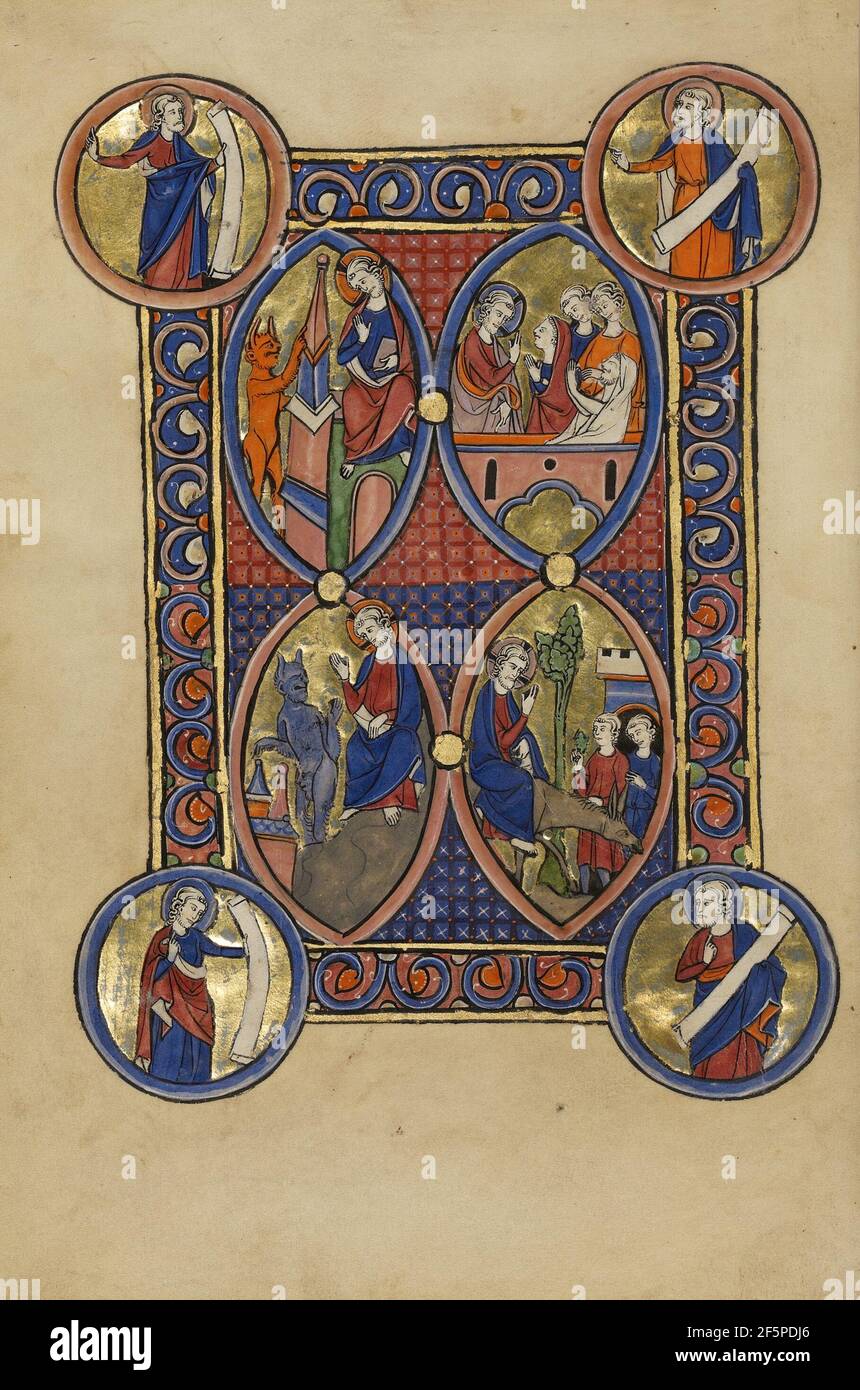 alamy
Image ID: 2F5PDJ6
www.alamy.com